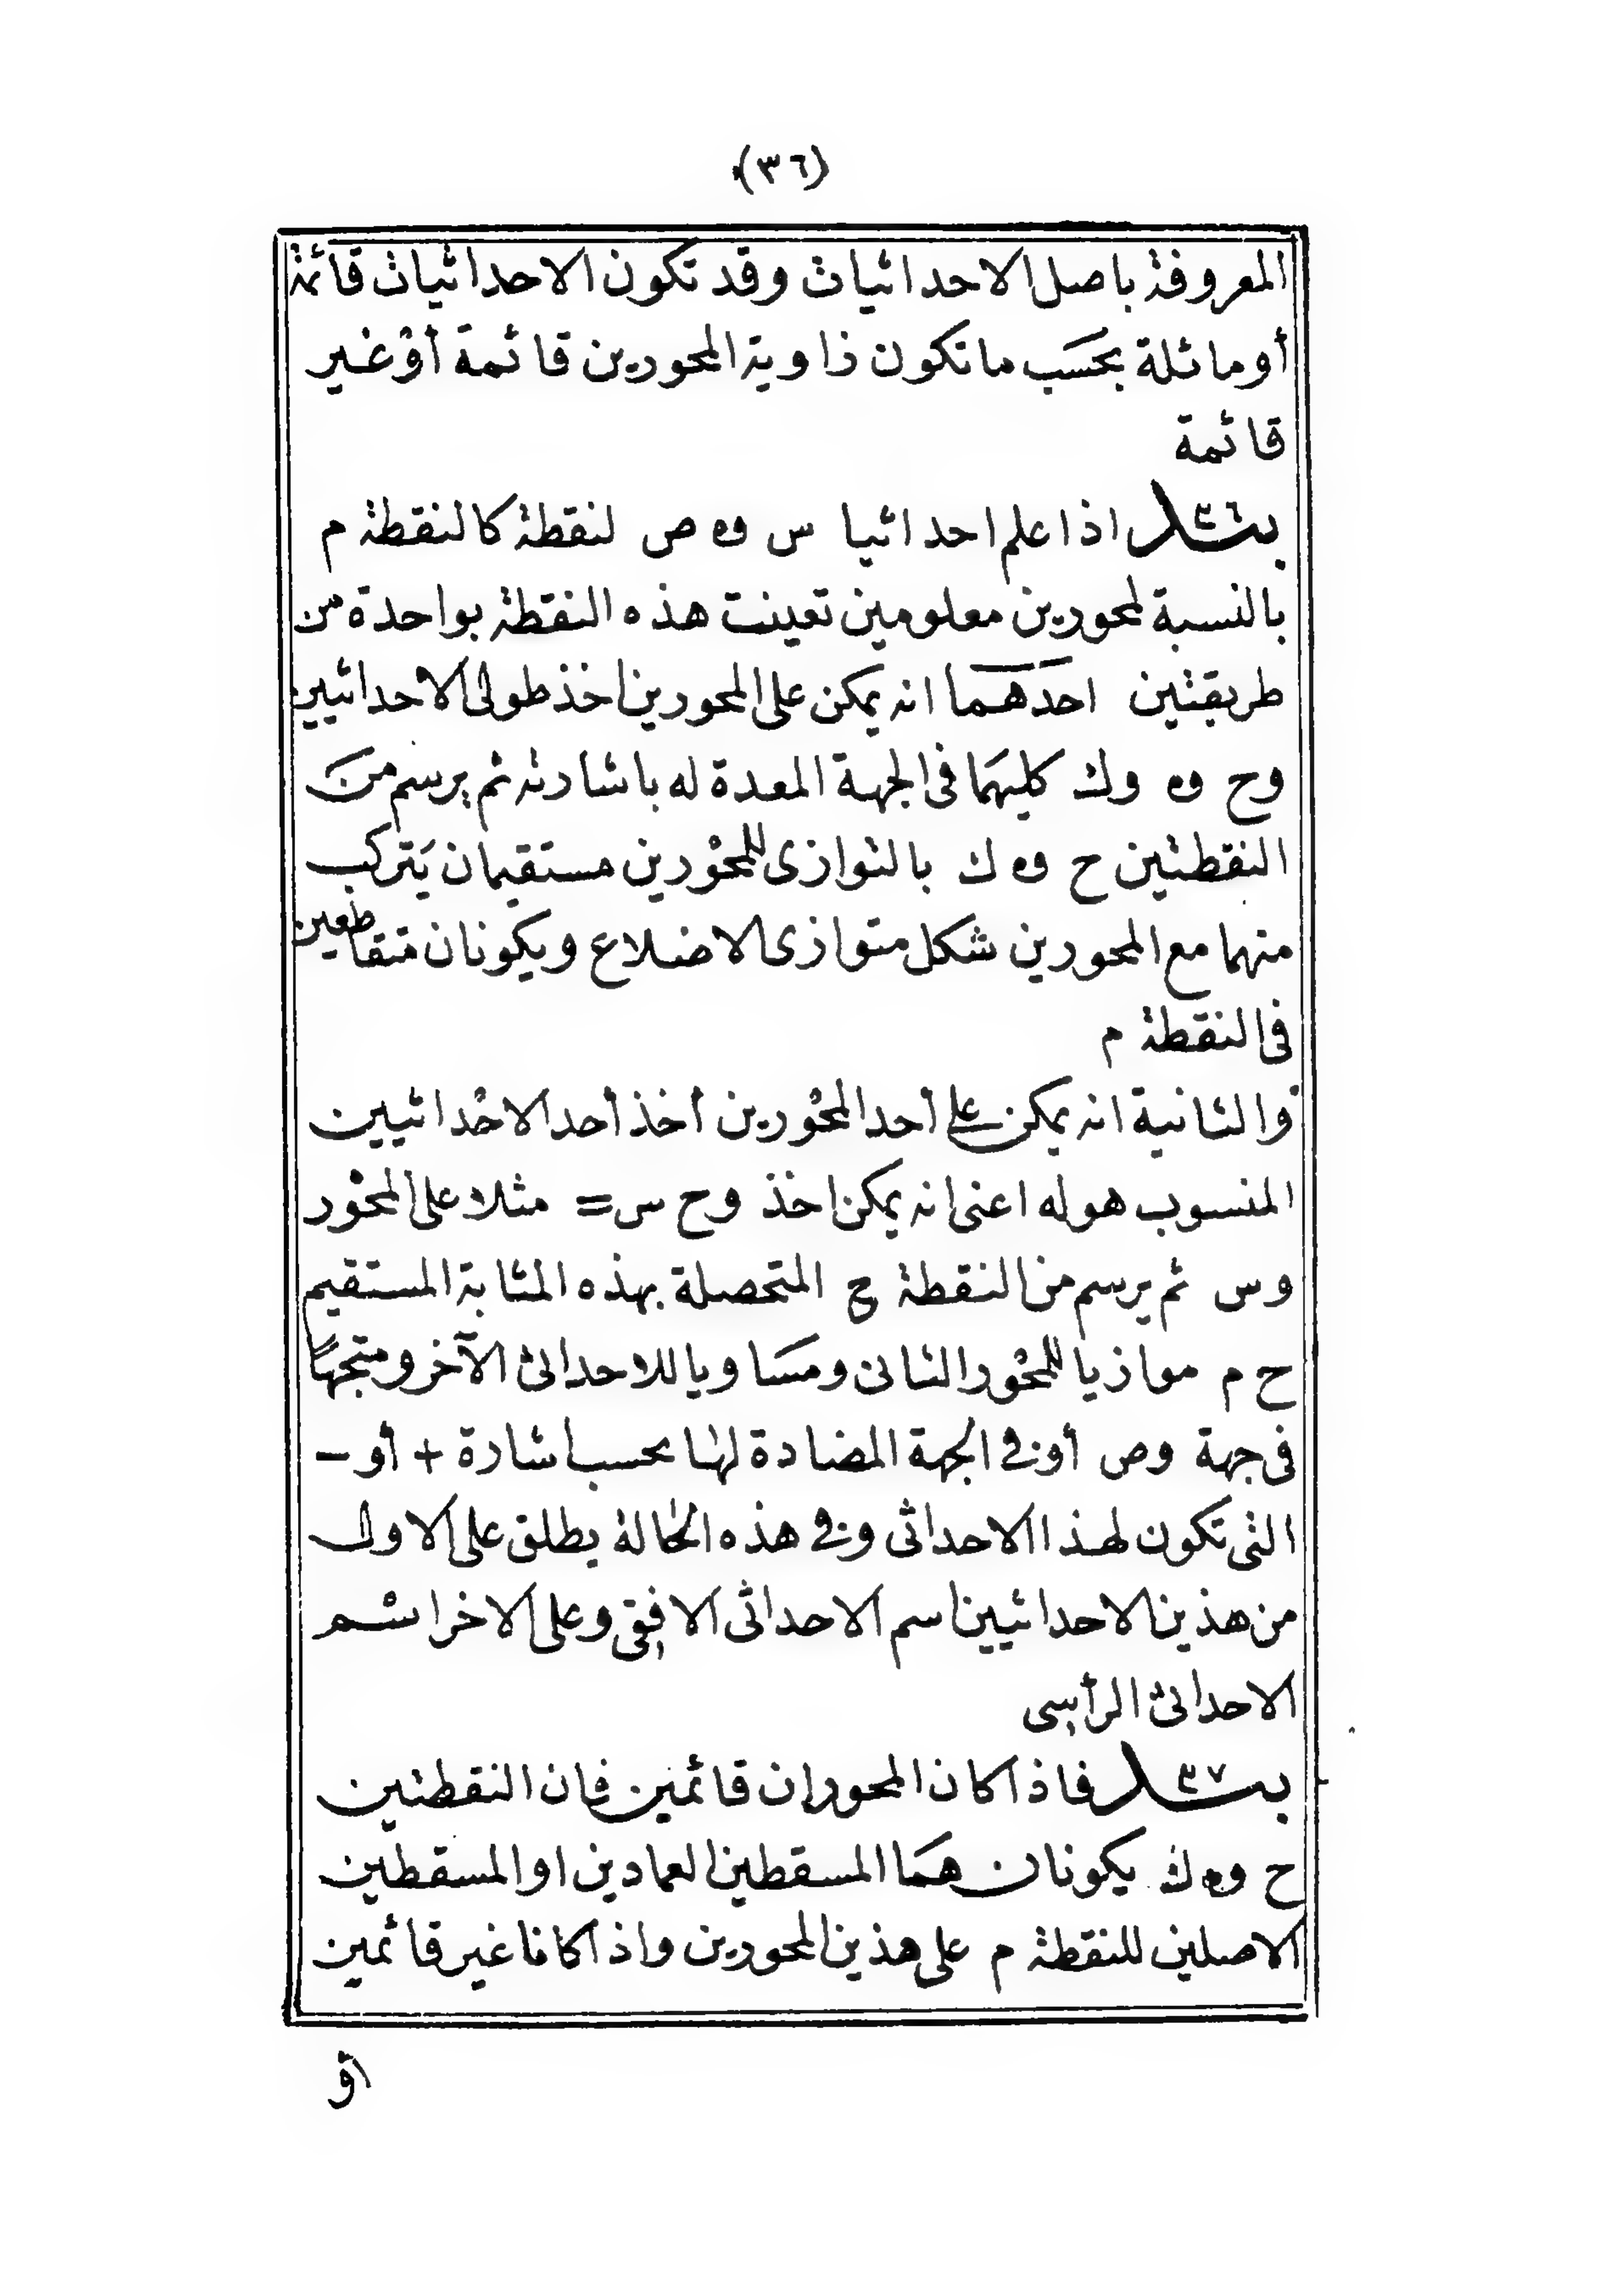 (٣٦)
المعروفة باصل الاحداثيات وقد تكون الاحداثيات قائمة
أو مائلة بحَسَب ما تكون زاوية المحورين قائمة أوْ غير
قائمة
بند ٣٦ اذا علم احداثيا س وه ص لنقطة كالنقطة م
بالنسبة لمحورين معلومين تعينت هذه النقطة بواحدة من
طريقتين احَدَهما انه يمكن على المحورين اخذ طولى الاحداثيين
وح وه وك كليهَما فى الجهة المعدة له باشارته ثم يرسم منَ
النقطتين ح وه ك بالتوازى للمحوْرين مستقيمان يَتركب
منهما مع المحورين شكل متوازى الاضلاع ويكونان متقاطعين
فى النقطة م
والثانية انه يمكن على أحد المحوْرين أخذ أحد الاحْداثيين
المنسوب هو له اعنى انه يمكن اخذ وح س= مثلا على المحوْر
وس ثم يرسم من النقطة ح المتحصلة بهذه المثابة المستقيم
ح م موازيا للمحوْر الثانى ومسَاويا للاحداثى الآخر ومتجهًا
فى جهة وص أو فى الجهة المضادة لها بحسب اشارة + أو −
التى تكون لهذا الاحداثى وفى هذه الحالة يطلق على الاول
من هذين الاحداثيين اسم الاحداثى الافقى وعلى الاخر اسْم
الاحداثى الرأسى
بند ٣٧ فاذا كان المحوران قائمين فان النقطتين
ح وه ك يكونان همَا المسقطين العمادين او المسقطين
الاصلين للنقطة م على هذين المحورين واذا كانا غير قائمين
أو